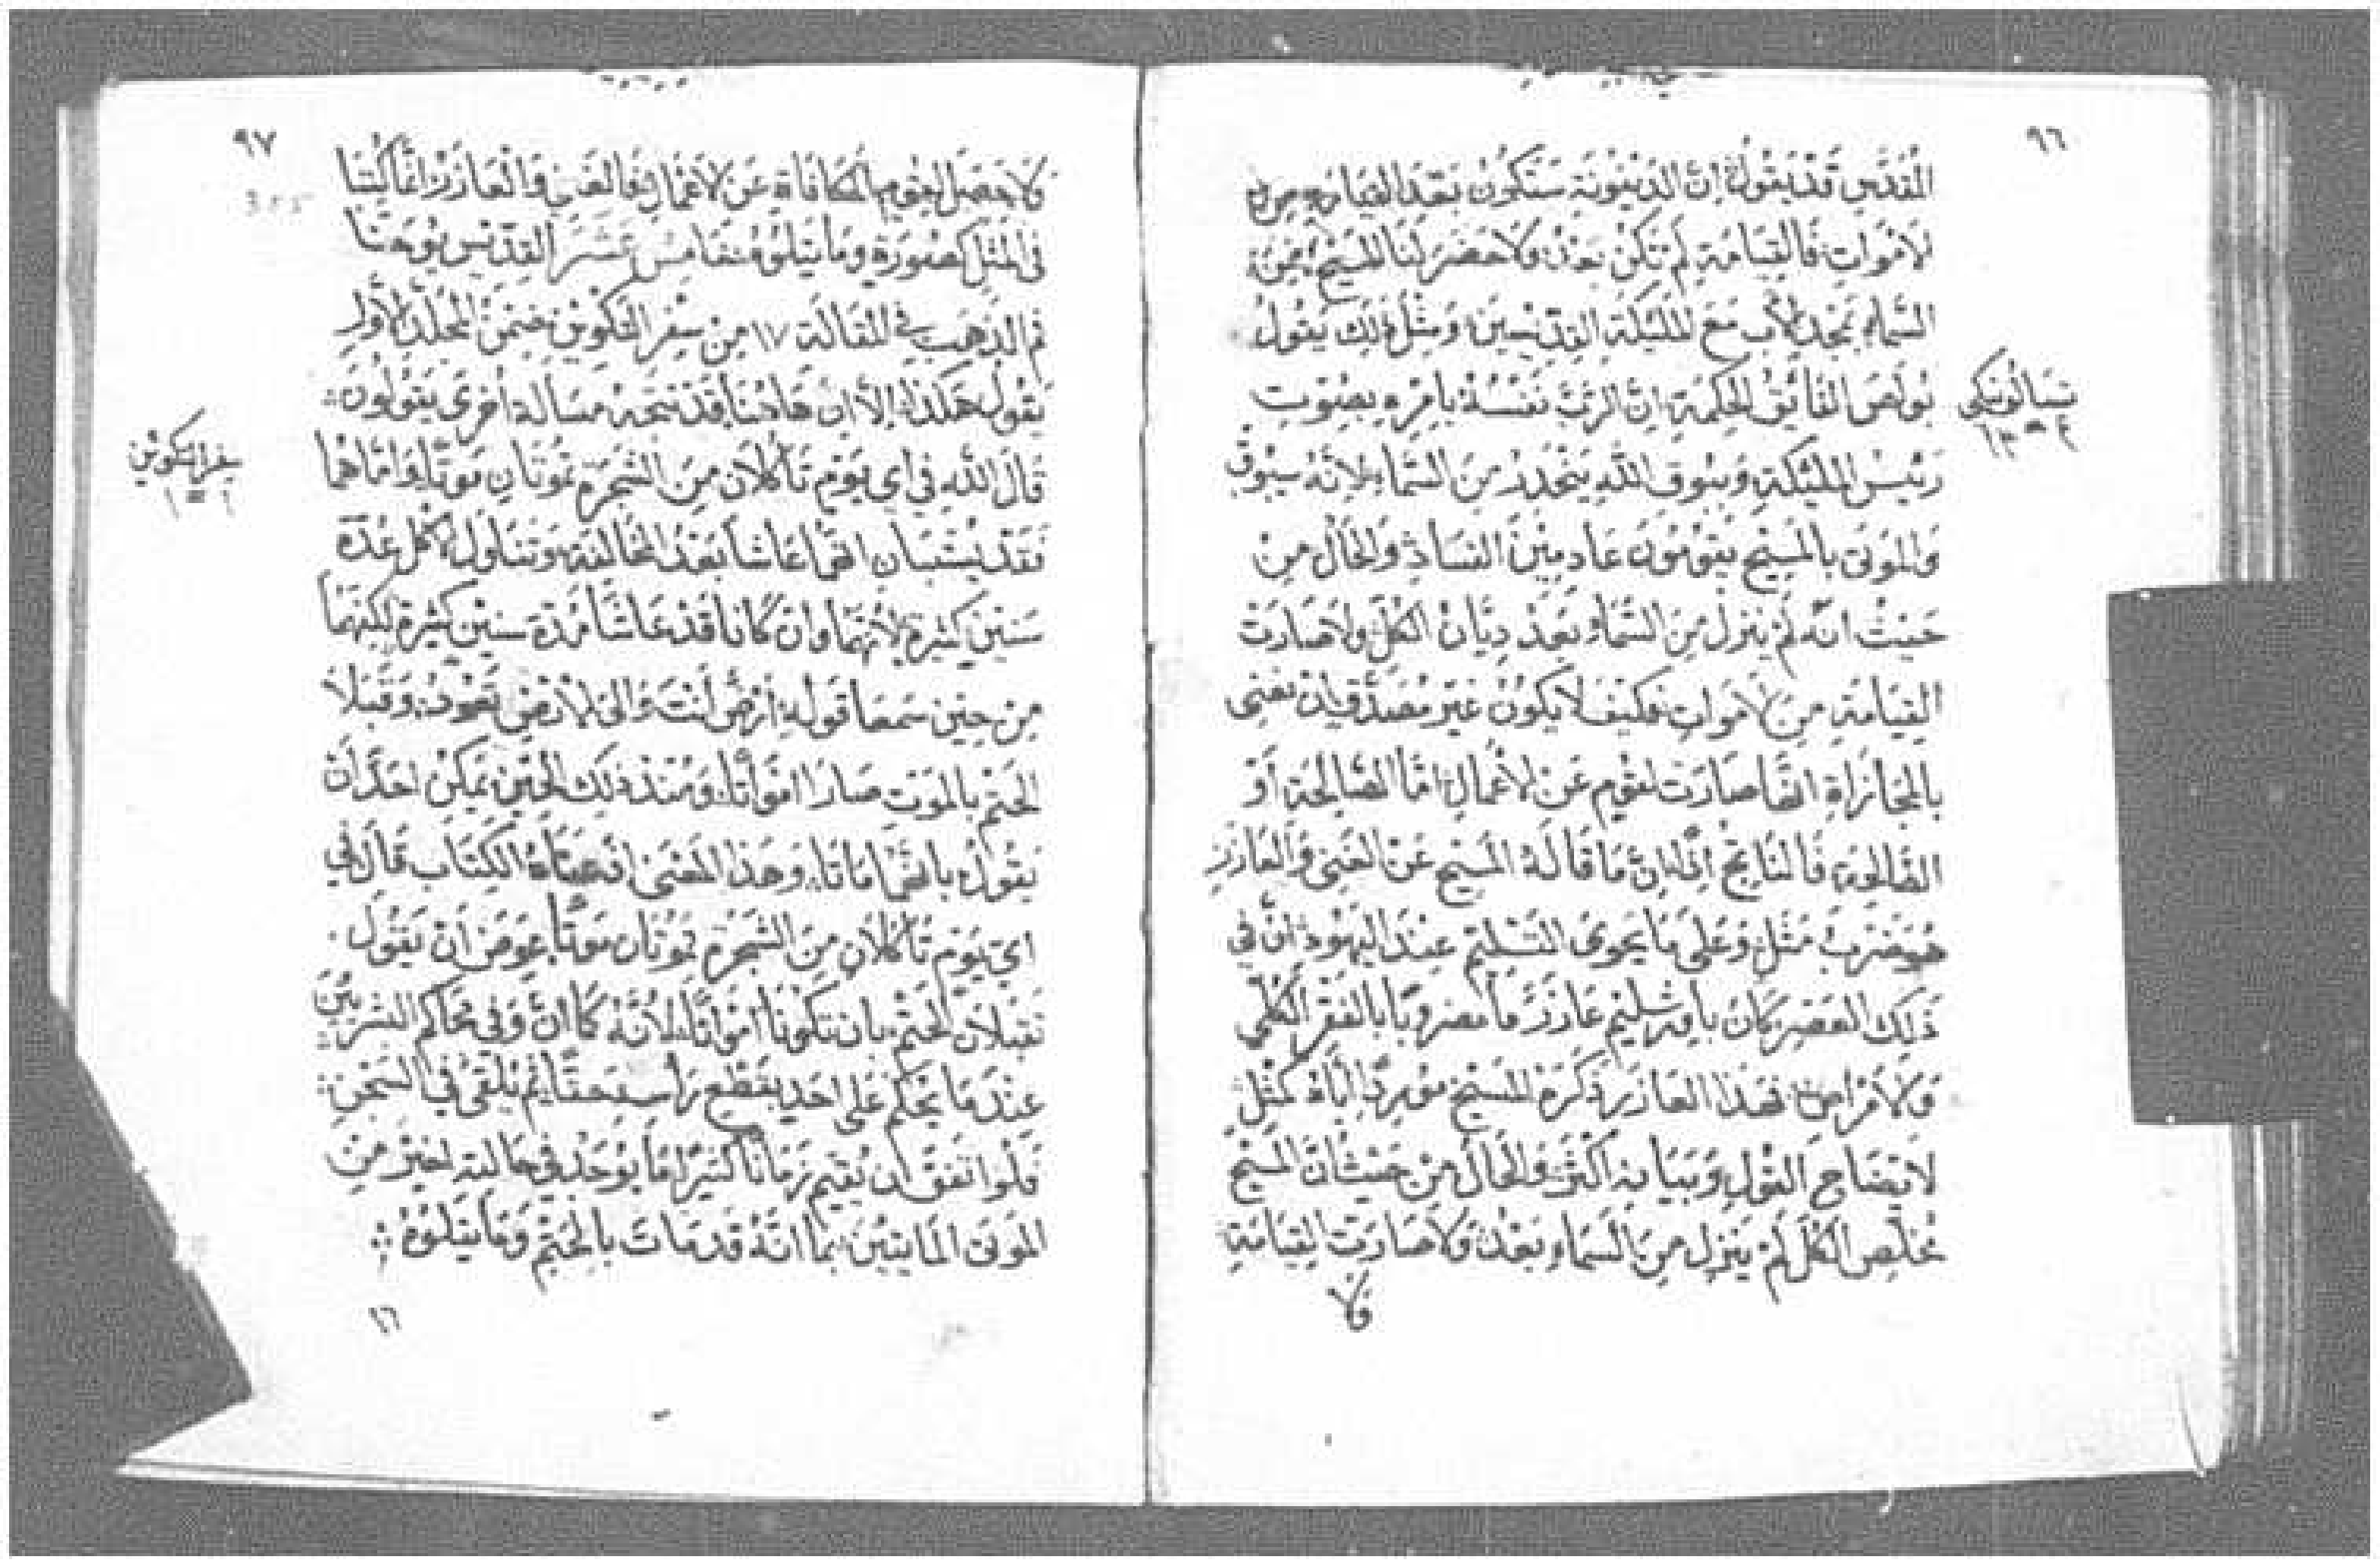 ٩٦
المُقدَّس قَد يَقُول انَّ الدَينُونَة سَتَكُون بَعْدَ القيَامَة من
لاَموَات فَالقيَامَة لَم تَكُنْ بَعْدْ وَلاَ حَضَرَ لَنَا المَسيح مِنَ
السَّمَاءِ بمَجْد الاب مَعَ المليكَة القِدّيسين وَمثْلَ ذَلكَ يَقُول
تسَالُونيكى
بُولُصَ الفَائِقُ الحِكمَة انَّ الرَّبَّ نَفْسُهُ بامرِه بِصَوت
رَئيسْ المليْكَةِ وَببُوق اللَّهِ يَنْحَدِرْ مِنَ السَّمَاءِ لاَنَّهُ سيبَوّق
وَالمَوتَى بالمَسيح يَقُومُونَ عَادِميْنَ الفَسَادْ وَالحَالْ مِنْ
حَيْثْ انَّه لَم يَنزل مِنَ السَّمَاءِ بَعدْ دِيَّان الكُلّ وَلاَ صَارَتْ
القيَامَة مِنَ لاَموَات فكَيفَ لاَ يَكُونُ غَيْر مُصَدَّق انْ نَعنى
بالمجَازَاةِ انَّهَا صَارَت لقَوم عَن لاَعْمَال امَّا الصَّالِحَة أَوْ
الطَّالِحَة فَالنَاتِجْ اذًا انَّ مَا قَالَهُ المَسيح عَنْ الغَني وَالعَازَرِ
هُوَ ضَربْ مَثَل وَعَلى مَا يَحوىَ التَسْليم عِنْدَ اليَهُود انَّ في
ذَلِكَ العَصر كَانَ باورشَليم عَازَرْ مَا مَضروبًا بالفَقْر الكُلّي
وَلاَمرَاض فهَذَا العَازَر ذَكَرَهُ المَسيح مورِدًا ايَّاهُ كمَثَلِ
لاَيضَاح القَول وَبَيَانِه اكْثَر وَالحَالْ مِنْ حَيْثْ انَّ المَسيح
مُخَلِص الكُلّ لَمْ يَنزل مِنَ السَمَاءِ بَعْدْ وَلاَ صَارَت القيَامَة
فَلاَ
٩٧
وَلاَ حَصَلَ لقَومٍ المكَافَاة عَن لاَعْمَال فَالغَني وَالعَازَرْ انَّمَا كُتبَا
في المثَل كصُورَة وَمَا يَتلُوهُ خَامِس عَشَر القدّيس يُوحَنَّا
فم الذَهَب في المَقَالَة ١٧ مِنْ سِفر التَكْوين ضِمْن المُجَلّد الأَوّل
يَقُولْ هَكَذَا الاّ انَّ هَاهُنَا قَدْ تتجه مسَالة أخرَى يَقُولُون
سفر التكوين
قَالَ اللَّه في اي يَوم تَأكُلاَن مِنَ الشَجَرَة تمُوتَانِ مَوتًا وَامَّا هُمَا
فَقَد يُسْتَبَان انَّهُمَا عَاشَا بَعْدَ المُخَالَفَة وَتَنَاول لاَكل عِدّة
سَنيْن كثيرَة لاَنَّهُمَا وَان كَانَا قَدْ عَاشَا مُدة سنيْن كَثيرَة لَكِنَّهُمَا
مِن حِيْن سَمعَا قَوله أَرضْ انْتَ وَالىَ لاَرْض تَعُودْ وَقَبلاَ
الحَتْم بالموَت صَارَا امْوَاتًا وَمُنْذْ ذَلِكَ الحَيْن يمكن احَدْ انْ
يَقُول بانَّهُمَا مَاتَا وَهَذا المَعْنَى الكتَاب قَالَ في
اي يَوم تَأكُلاَن مِنَ الشَجَرَة تمُوتَان مَوتًا عوضْ انْ يَقُول
تَقبَلاَن الحَتْم بان تَكُونَا امْوَاتًا لأَنَّهُ كمَا انْ وَفي مَحَاكم البشريين
عِنْدَمَا يُحكَم عَلى احَد بقَطع رَاسه حَتمًا ثم يُلْقَى في السِجْنِ
فَلَو اتَفَقَ انْ يُقيم زَمَانًا كَثيرًا مَا يُوجَدْ في حَالة اخْيَر مِنَ
المَوتَى المَايتِينْ بما انَّهُ قَدْ مَاتَ بالحَتْم وَمَا يَتلُوهُ
١٦